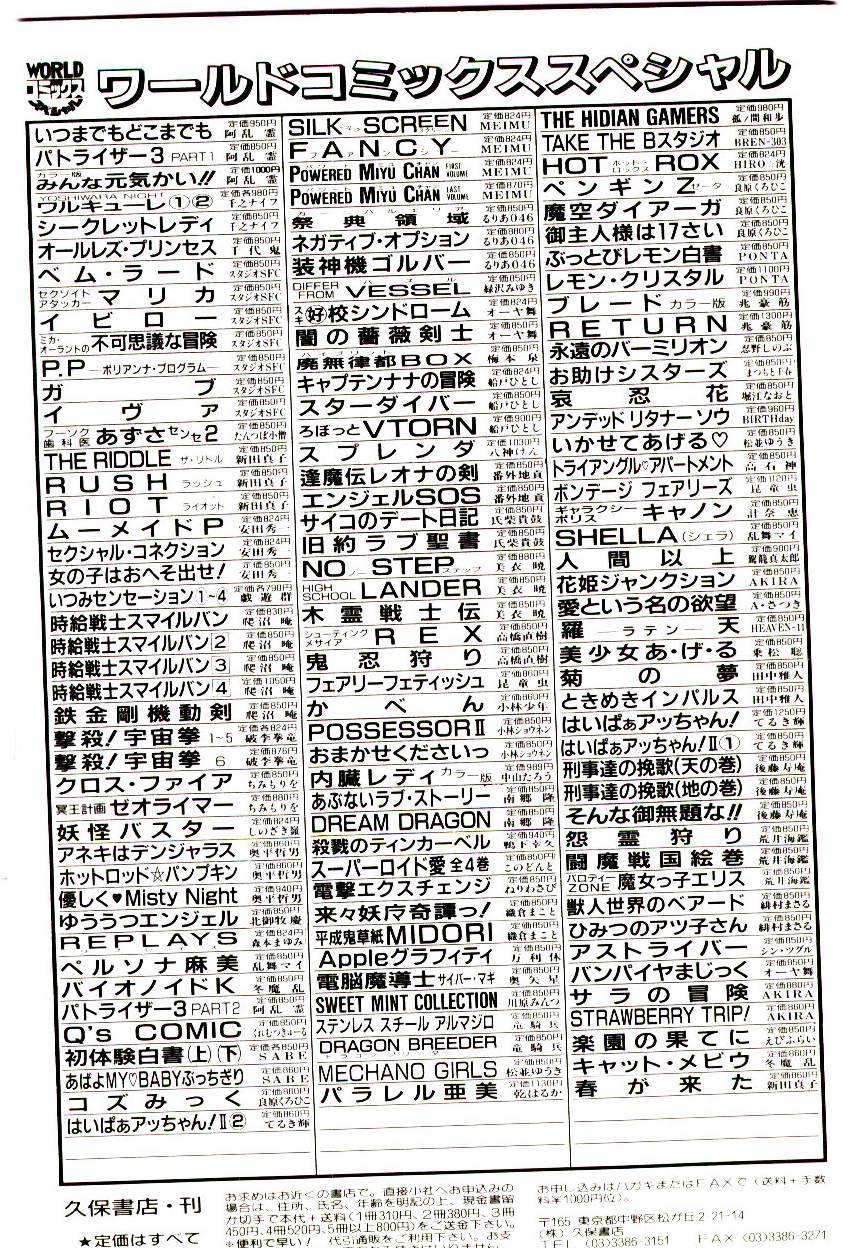 WORLD
コミックス
スペシャル
ワールドコミックススペシャル
いつまでもどこまでも 定価950円 阿乱霊
パトライザー3 PART1 定価850円 阿乱霊
カラー版 みんな元気かい!! 定価1000円 阿乱霊
YOSHIWARA NIGHT ワルキューレ①② 定価各980円 千之ナイフ
シークレットレディ 定価850円 千之ナイフ
オールレズ・プリンセス 定価850円 千代鬼
ベム・ラード 定価850円 スタジオSFC
セクソイドアタッカー マリカ 定価850円 スタジオSFC
イビロー 定価850円 スタジオSFC
ミカ・オーラントの不可思議な冒険 定価850円 スタジオSFC
P.P—ポリアンナ・プログラム— 定価850円 スタジオSFC
ガブ 定価850円 スタジオSFC
イヴァ 定価850円 スタジオSFC
フーゾク歯科医 あずさセンセ2 定価850円 たんつぼ小僧
THE RIDDLE ザ・リドル 定価850円 新田真子
RUSH ラッシュ 定価850円 新田真子
RIOT ライオット 定価850円 新田真子
ムーメイドP 定価824円 安田秀一
セクシャル・コネクション 定価824円 安田秀一
女の子はおへそ出せ! 定価850円 安田秀一
いつみセンセーション1~4 定価各790円 戯遊群
時給戦士スマイルバン 定価830円 爬沼庵
時給戦士スマイルバン2 定価850円 爬沼庵
時給戦士スマイルバン3 定価850円 爬沼庵
時給戦士スマイルバン4 定価1050円 爬沼庵
鉄金剛機動剣 定価850円 爬沼庵
撃殺!宇宙拳 1-5 定価各824円 破李拳竜
撃殺!宇宙拳 6 定価876円 破李拳竜
クロス・ファイア 定価850円 ちみもりを
冥王計画ゼオライマー 定価880円 ちみもりを
妖怪バスター 定価824円 しのざき嶺
アネキはデンジャラス 定価860円 奥平哲男
ホットロッド☆パンプキン 定価860円 奥平哲男
優しく♥Misty Night 定価940円 奥平哲男
ゆううつエンジェル 定価850円 北御牧慶
REPLAYS 定価824円 森本まゆみ
ペルソナ麻美 定価850円 乱舞マイ
バイオノイドK 定価850円 冬魔乱
パトライザー3 PART2 定価850円 阿乱霊
Q's COMIC 定価850円 くれむつきゅーる
初体験白書(上)(下) 定価各850円 SABE
あばよMY♡BABYぶっちぎり 定価860円 SABE
コズみっく 定価860円 良原くろひこ
はいぱぁアッちゃん!Ⅱ② 定価860円 てるき輝
SILK SCREEN 定価824円 MEIMU
FANCY 定価824円 MEIMU
POWERED MIYU CHAN FIRST VOLUME 定価824円 MEIMU
POWERED MIYU CHAN LAST VOLUME 定価870円 MEIMU
祭典領域 定価850円 るりあ046
ネガティブ・オプション 定価880円 るりあ046
装神機ゴルバー 定価850円 るりあ046
DIFFER FROM VESSEL 定価850円 緑沢みゆき
スキ(好)校シンドローム 定価824円 オーヤ舞
闇の薔薇剣士 定価850円 オーヤ舞
廃無律都BOX 定価850円 梅本泉
キャプテンナナの冒険 定価824円 船戸ひとし
スターダイバー 定価850円 船戸ひとし
ろぼっとVTORN 定価900円 船戸ひとし
スプレンダ 定価1030円 八神けん
逢魔伝レオナの剣 定価850円 番外地貢
エンジェルSOS 定価850円 番外地貢
サイコのデート日記 定価850円 氏柴貴鼓
旧約ラブ聖書 定価850円 氏柴貴鼓
NO STEP ステップ 定価880円 美衣暁
HIGH SCHOOL LANDER 定価850円 美衣暁
木霊戦士伝 定価850円 美衣暁
シューティングメサイア REX 定価850円 高橋直樹
鬼忍狩り 定価850円 高橋直樹
フェアリーフェティッシュ 定価850円 昆童虫
かべん 定価860円 小林少年
POSSESSORⅡ 定価850円 小林ショウネン
おまかせくださいっ 定価850円 小林ショウネン
内臓レディカラー版 定価989円 中山たろう
あぶないラブ・ストーリー 定価850円 南郷隆
DREAM DRAGON 定価850円 南郷隆
殺戮のティンカーベル 定価940円 鴨下幸久
スーパーロイド愛 全4巻 定価各860円 このどんと
電撃エクスチェンジ 定価850円 ねりわさび
来々妖疨奇譚っ! 定価850円 織倉まこと
平成鬼草紙MIDORI 定価850円 織倉まこと
Appleグラフィティ 定価850円 万利休
電脳魔導士サイバー・マキ 定価850円 奥矢星
SWEET MINT COLLECTION 定価850円 川原みんつ
ステンレス スチール アルマジロ 定価850円 竜騎兵
DRAGON BREEDER 定価850円 竜騎兵
MECHANO GIRLS 定価850円 松並ゆうき
パラレル亜美 定価1130円 乾はるか
THE HIDIAN GAMERS 定価980円 孤ノ間和歩
TAKE THE Bスタジオ 定価850円 BREN-303
HOT ROX ホット・ロックス 定価824円 HIRO洸
ペンギンZ ゼータ 定価850円 良原くろひこ
魔空ダイアーガ 定価850円 良原くろひこ
御主人様は17さい 定価850円 良原くろひこ
ぶっとびレモン白書 定価850円 PONTA
レモン・クリスタル 定価1100円 PONTA
ブレードカラー版 定価990円 兆豪筋
RETURN 定価1300円 兆豪筋
永遠のバーミリオン 定価850円 忍野しのぶ
お助けシスターズ 定価850円 まつもと千春
哀忍花 定価850円 堀江なおと
アンデッドリタナーソウ 定価960円 BIRTHday
いかせてあげる♡ 定価850円 松並ゆうき
トライアングル♡アパートメント 定価850円 高石神
ボンデージ フェアリーズ 定価1120円 昆童虫
ギャラクシーポリス キャノン 定価850円 計奈恵
SHELLA(シェラ) 定価850円 乱舞マイ
人間以上 定価900円 駕籠真太郎
花姫ジャンクション 定価850円 AKIRA
愛という名の欲望 定価850円 A・さつき
羅天 ラテン 定価850円 HEAVEN-11
美少女あ・げ・る 定価850円 乗松聡
菊の夢 定価850円 田中雅人
ときめきインパルス 定価850円 田中雅人
はいぱぁアッちゃん! 定価1250円 てるき輝
はいぱぁアッちゃん!Ⅱ① 定価850円 てるき輝
刑事達の挽歌(天の巻) 定価850円 後藤寿庵
刑事達の挽歌(地の巻) 定価850円 後藤寿庵
そんな御無題な!! 定価850円 後藤寿庵
怨霊狩り 定価850円 荒井海鑑
闘魔戦国絵巻 定価850円 荒井海鑑
パロティーZONE 魔女っ子エリス 定価850円 荒井海鑑
獣人世界のベアード 定価850円 緋村まさる
ひみつのアツ子さん 定価850円 緋村まさる
アストライバー 定価850円 シン・ツグル
バンパイヤまじっく 定価850円 オーヤ舞
サラの冒険 定価860円 AKIRA
STRAWBERRY TRIP! 定価860円 AKIRA
楽園の果てに 定価850円 えびふらい
キャット・メビウ 定価860円 冬魔乱
春が来た 定価860円 新田真子
久保書店・刊
★定価はすべて
お求めはお近くの書店で。直接小社へお申込みの
場合は、住所、氏名、年齢を明記の上、現金書留
か切手で本代+送料(1冊310円、2冊380円、3冊
450円、4冊520円、5冊以上800円)をご送金下さい。
※便利で早い! 代引通販をご利用下さい。お支
お申し込みはハガキまたはFAXで(送料+手数
料¥1000円位)。
〒165 東京都中野区松が丘2-21-14
(株)久保書店
TEL (03)3386-3151 FAX (03)3386-3271